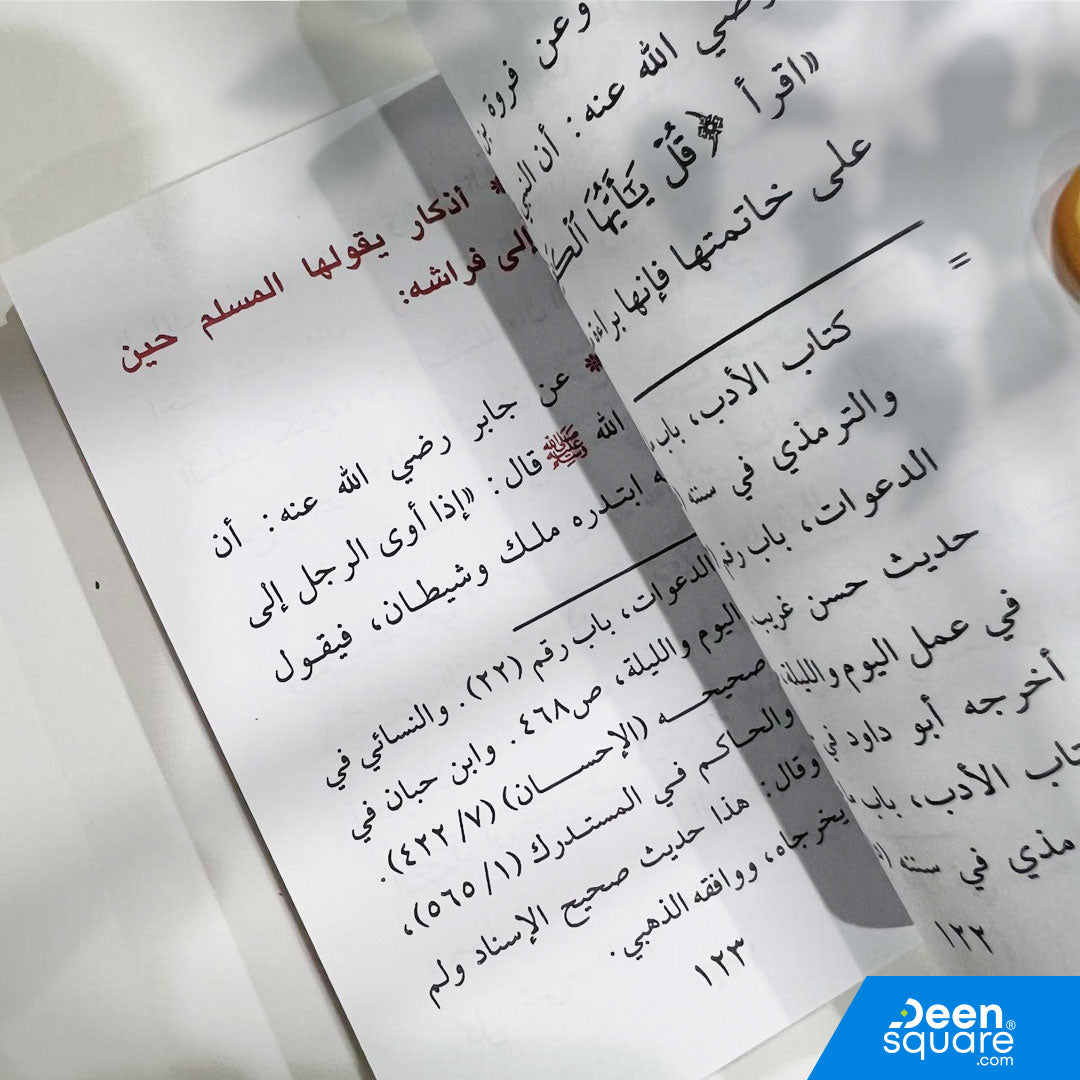 وعن فروة بن
رضي الله عنه: أن النبي
«اقرأ ﴿قُلْ يَٰٓأَيُّهَا
على خاتمتها فإنها براءة
=
كتاب الأدب، باب
والترمذي في سننه
الدعوات، باب رقم
حديث حسن غريب
في عمل اليوم والليلة،
أخرجه أبو داود في
الأدب، باب
في سننه
١٢٢
* أذكار يقولها المسلم حين
إلى فراشه:
* عن جابر رضي الله عنه: أن
الله ﷺ قال: «إذا أوى الرجل إلى
ابتدره ملك وشيطان، فيقول
الدعوات، باب رقم (٢٢). والنسائي في
اليوم والليلة، ص٤٦٨. وابن حبان في
صحيحه (الإحسان) (٧/ ٤٢٢).
والحاكم في المستدرك (١/ ٥٦٥)،
وقال: هذا حديث صحيح الإسناد ولم
يخرجاه، ووافقه الذهبي.
١٢٣
Deen®
square
.com